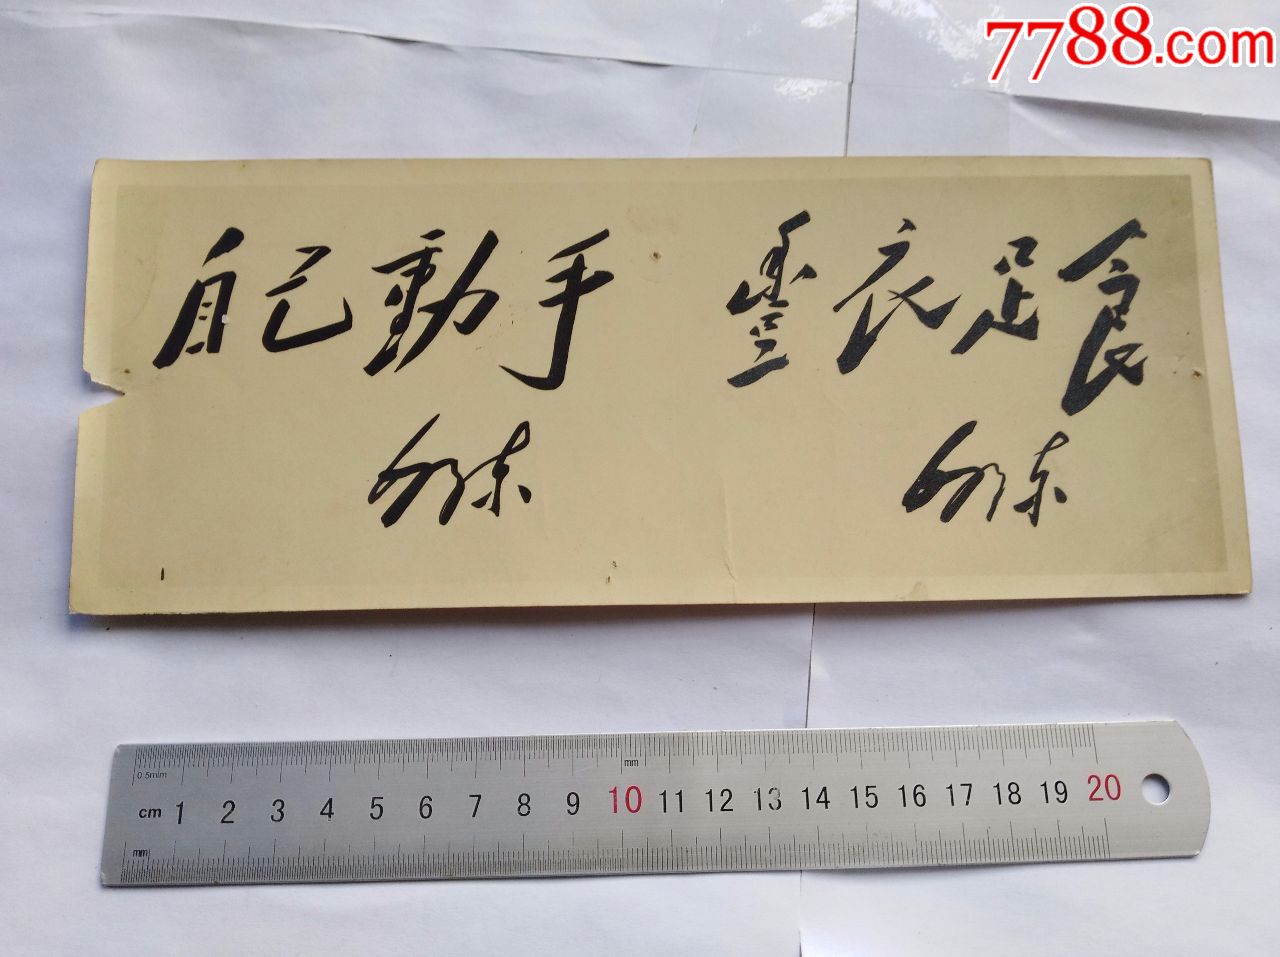 7788.com
自己動手 豐衣足食
泽东 泽东
0.5mm
mm
cm 1 2 3 4 5 6 7 8 9 10 11 12 13 14 15 16 17 18 19 20
mm